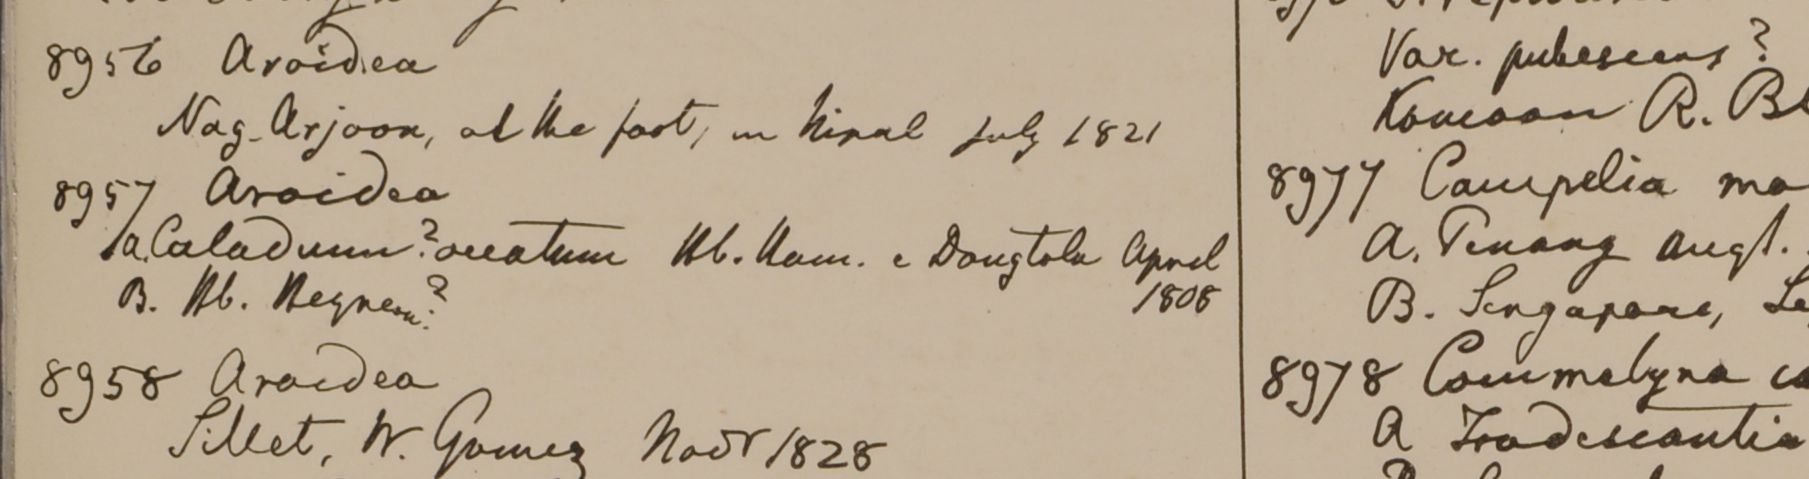 8956 Aroidea
Nag-Arjoon, at the foot, in Nipal July 1821
8957 Aroidea
a. Caladium? Hb. Ham. e Dougtola April
1808
B. Hb. Heynean?
8958 Aroidea
Sillet, W. Gomez Novr 1828
Var. pubescens?
Kamaon R. Bl
8977 Campelia ma
A. Penang Augt.
B. Singapore,
8978 Commelyna ca
A Tradescantia